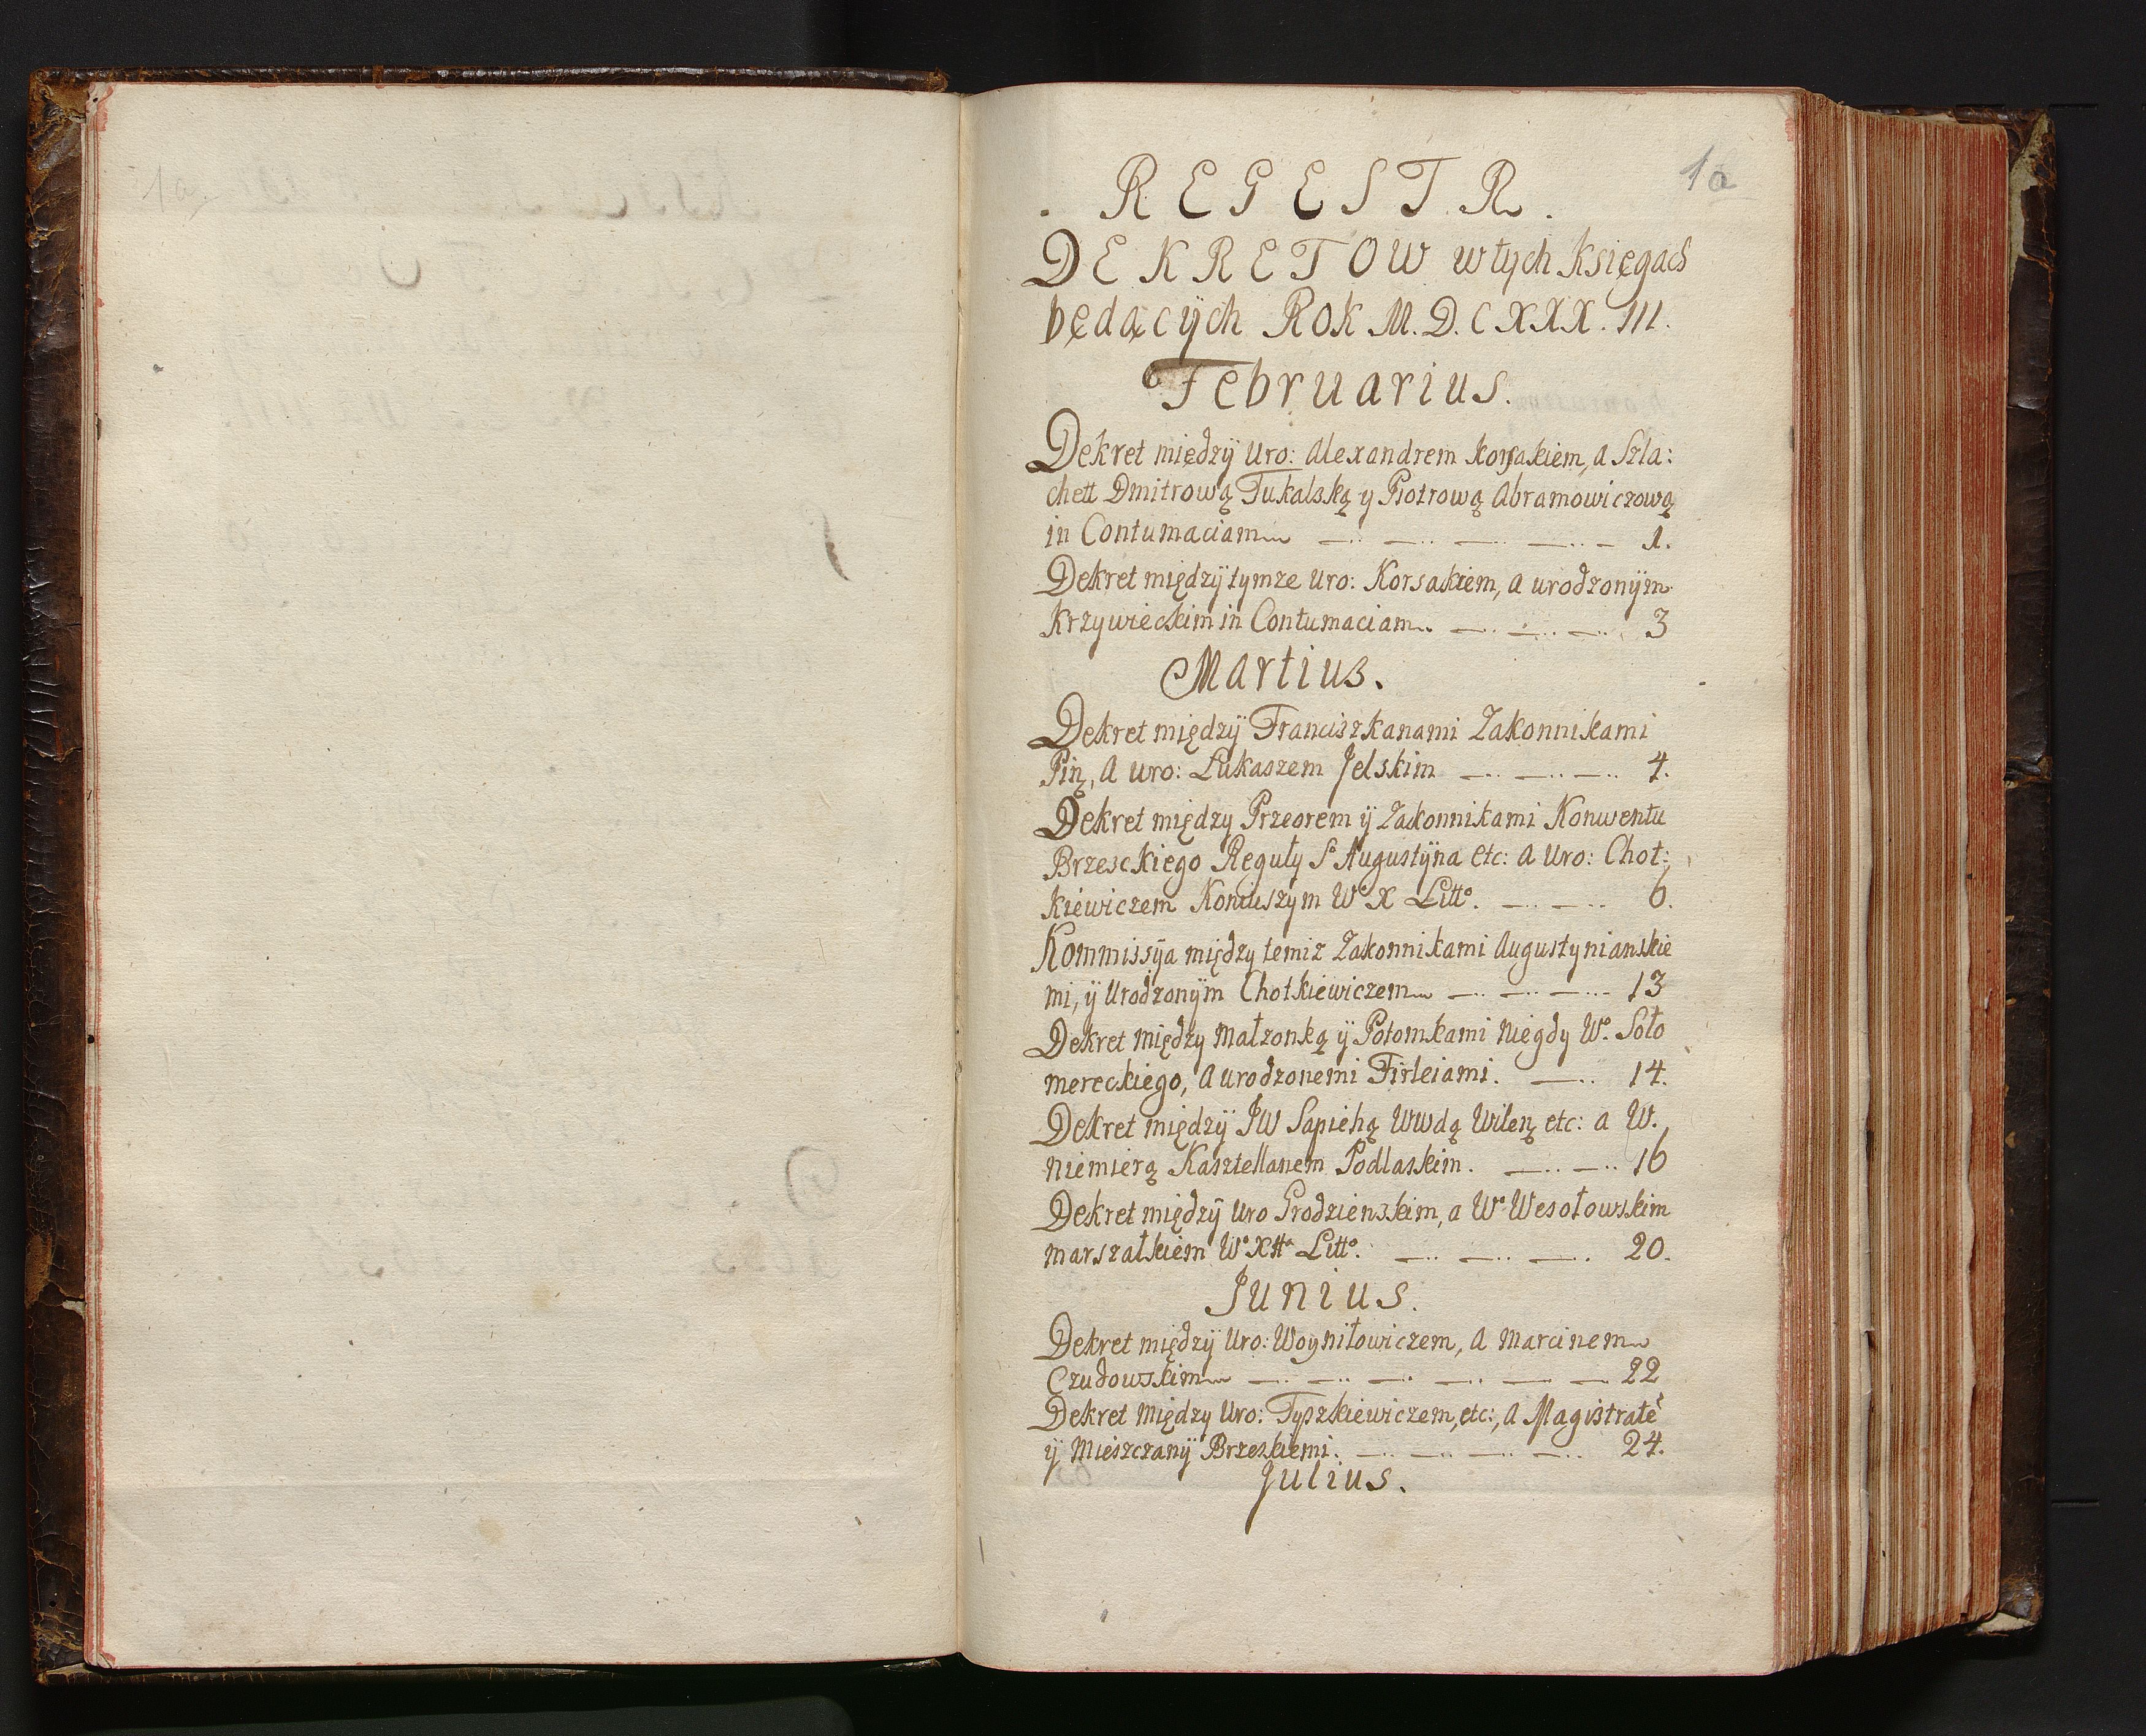 1a
REGESTR.
DEKRETOW w tych Księgach
będących Rok M.D.CXXX.III.
Februarius.
Dekret międzÿ Uro: Alexandrem Korsakiem, a Szla:
chett Dmitrową Tukalską y Piotrową Abramowiczową
in Contumaciam 1.
Dekret międzÿ tymze Uro: Korsakiem, a urodzonÿm
Krzywieckim in Contumaciam 3
Martius.
Dekret międzÿ Franciszkanami Zakonnikami
Piń, a Uro: Łukaszem Jelskim 4.
Dekret między Przeorem ÿ Zakonnikami Konwentu
Brzesckiego Reguły So Augustÿna etc: a Uro: Chot:
kiewiczem Koniuszym Wo X Litto. 6.
Kommissÿa między temiz Zakonnikami Augustynianskie
mi, ÿ Urodzonÿm Chotkiewiczem 13
Dekret między Małzonką ÿ Potomkami niegdy Wo. Soło
mereckiego, a urodzonemi Firleiami. 14.
Dekret międzÿ JW Sapiehą Wwdą Wilen etc: a W.
Niemierą Kasztellanem Podlaskim. 16
Dekret międzÿ Uro Grodzienskim, a Wo Wesołowskim
marszałkiem Wo Xtta Litto. 20.
Junius.
Dekret międzÿ Uro: Woyniłowiczem, a Marcinem
Czudowskim 22
Dekret między Uro: Tyszkiewiczem, etc:, a Magistratē
ÿ Mieszczanÿ Brzeskiemi. 24.
Julius.